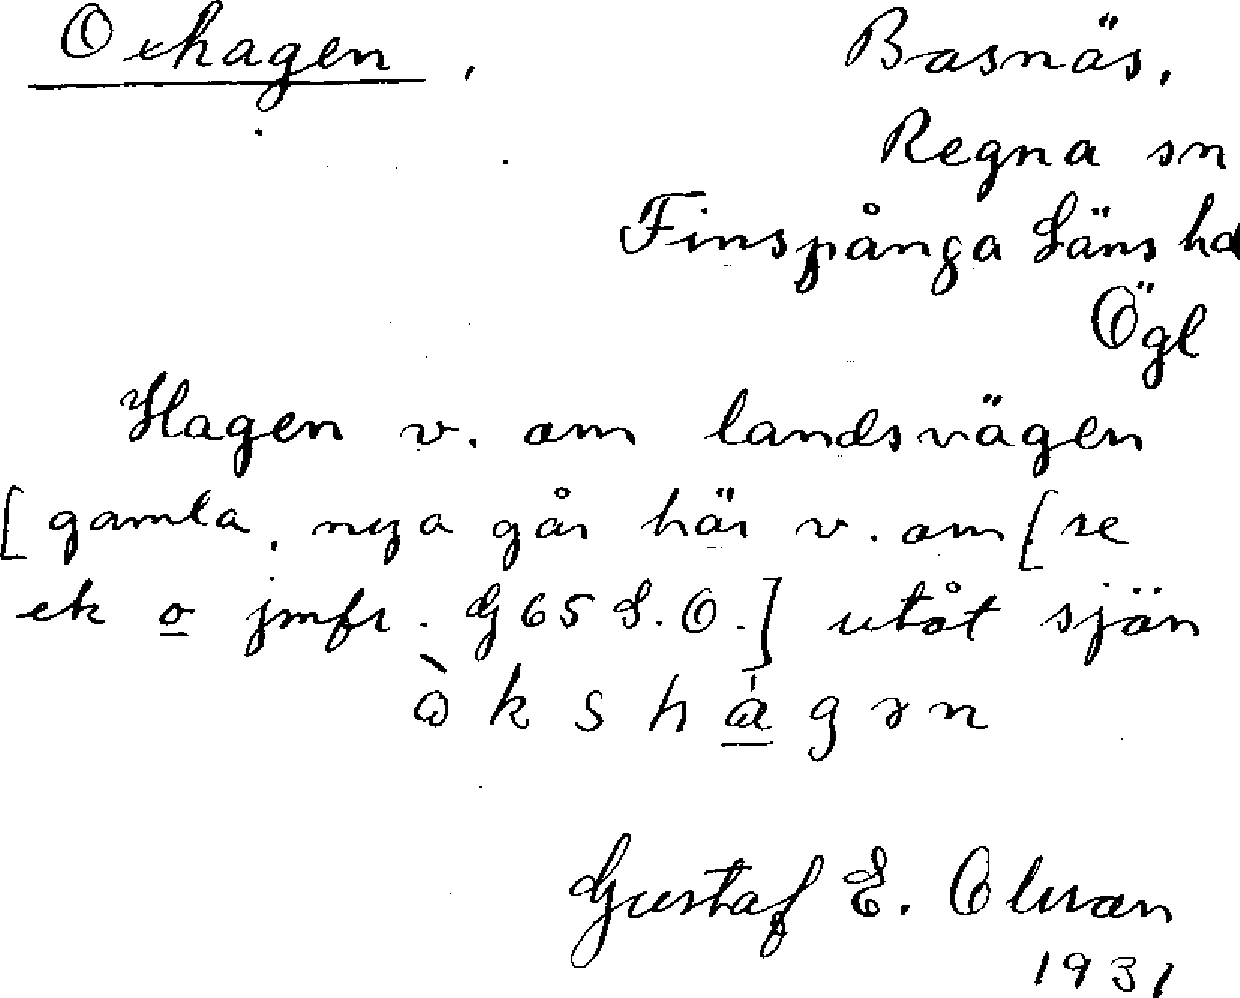 Oxhagen.
Basnäs,
Regna sn
Finspånga Läns hd
Ögl
Hagen v. om landsvägen
[gamla, nya går här v. om [se
ek o jmfr. G65 S.O.] utåt sjön
òkshágən
Gustaf E. Olsson
1931